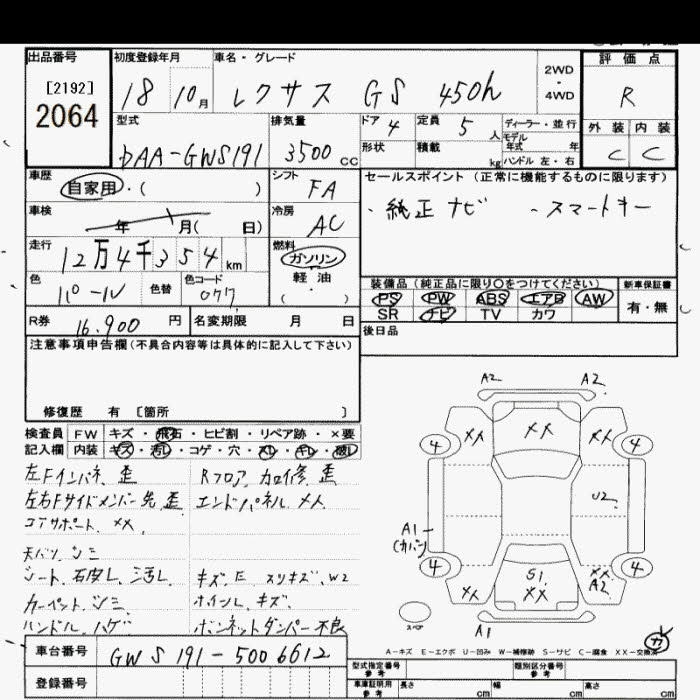 出品番号
[2192]
2064
初度登録年月
18 10月
車名・グレード
レクサス GS 450h
2WD
・
4WD
評価点
R
外装 内装
C C
型式
DAA-GWS191
排気量
3500 cc
ドア 4
形状
定員 5 人
積載 kg
ディーラー・並行
モデル
年式 年
ハンドル 左・右
車歴
自家用・( )
シフト FA
車検
年 月( 日)
冷房 AC
走行
12万4千354 km
燃料
ガソリン
軽・油
( )
色 パール
色替
色コード
077
R券 16.900 円
名変期限 月 日
セールスポイント(正常に機能するものに限ります)
・純正ナビ ・スマートキー
装備品(純正品に限り○をつけてください)
PS PW ABS エアB AW
SR ナビ TV カワ
新車保証書
有・無
後日品
注意事項申告欄(不具合内容等は具体的に記入して下さい)
修復歴 有 〔箇所 〕
検査員 FW キズ・飛石・ヒビ割・リペア跡・×要
記入欄 内装 キズ・汚レ・コゲ・穴・スレ・キレ・破レ
左Fインパネ 歪 Rフロア、カロ修、歪
左右Fサイドメンバー先、歪 エンドパネル メハ
コアサポート、XX、
天バリ、シミ
シート、石皮レ、シ汚レ、 キズ、E、スリキズ、W2
カーペット、シミ、 ホイール、キズ、
ハンドル、ハゲ ボンネットダンパー不良
A2 A2
XX XX XX
4 4
U2
A1
(カバン)
4 4
S1
XX XX XX
A2
A1
スペア
カ
A-キズ E-エクボ U-凹み W-補修跡 S-サビ C-腐食 XX-交換済
車台番号 GWS191-5006612
登録番号
型式指定番号
参考
類別区分番号
参考
車庫証明用
参考
長さ cm 幅 cm 高さ cm